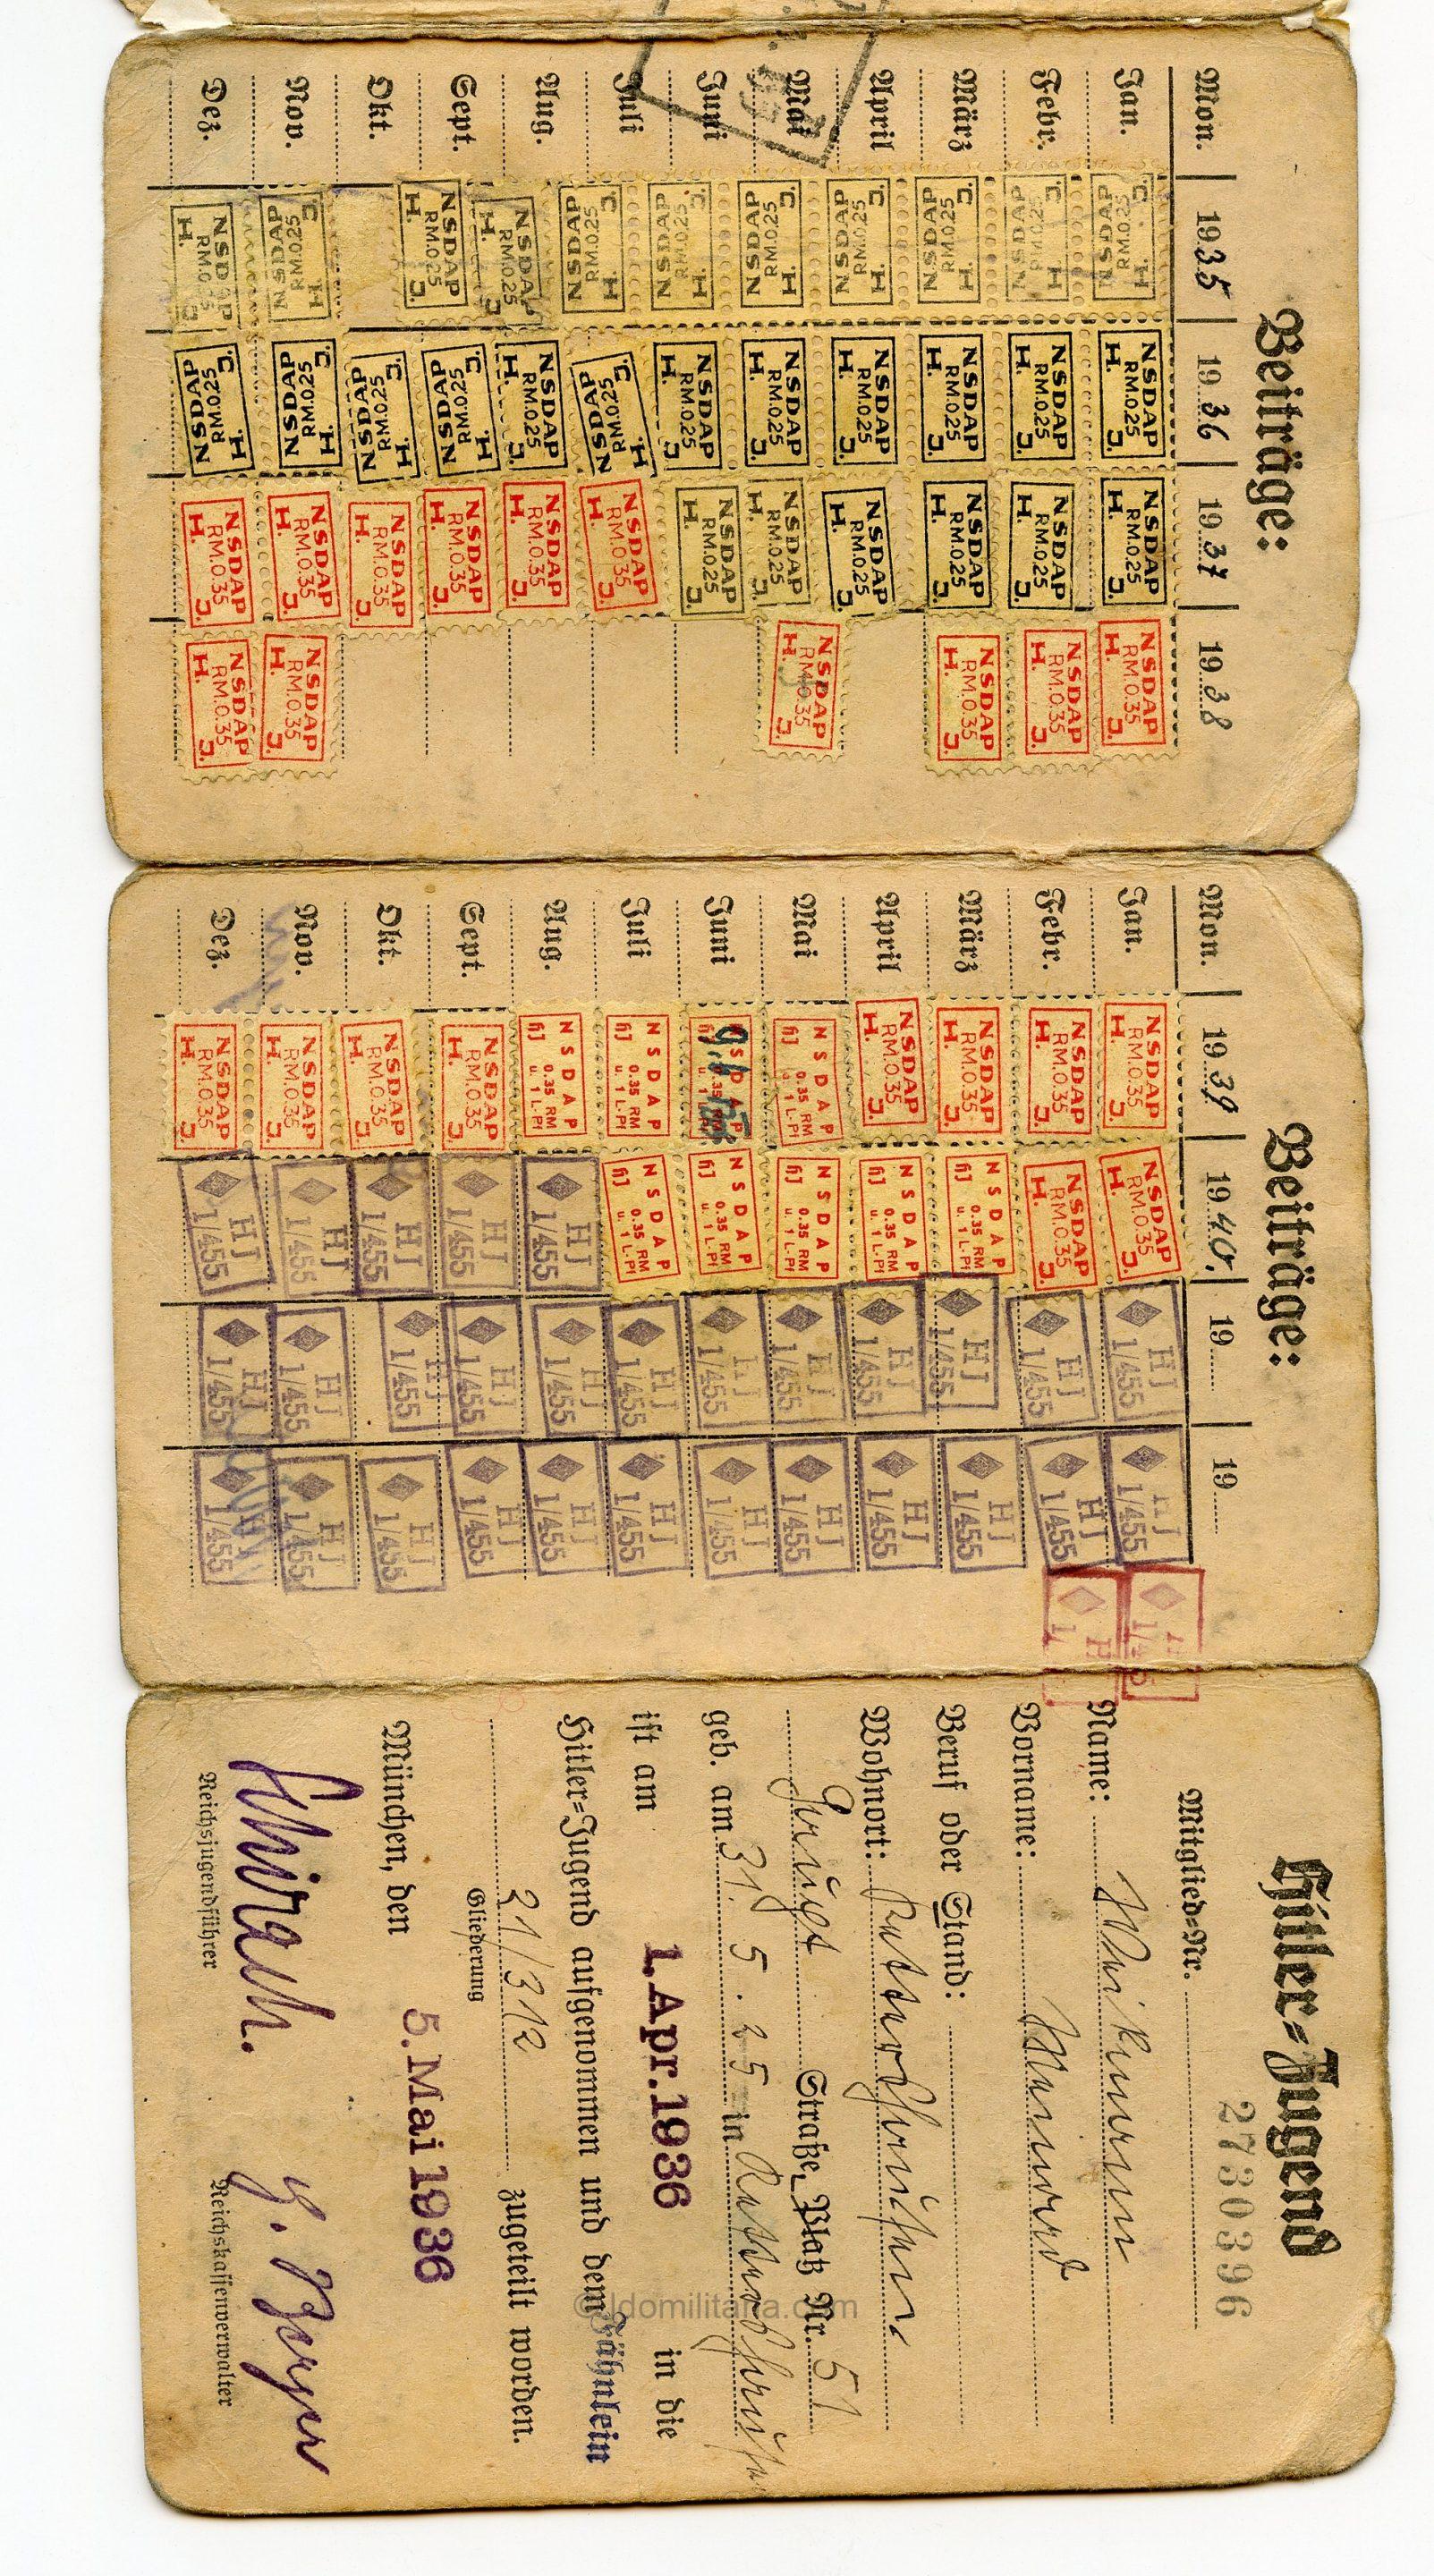 Beiträge:
Mon. 1935 1936 1937 1938
Jan. NSDAP RM.0.25 H. J. NSDAP RM.0.25 H. J. NSDAP RM.0.25 H. J. NSDAP RM.0.35 H. J.
Febr. NSDAP RM.0.25 H. J. NSDAP RM.0.25 H. J. NSDAP RM.0.25 H. J. NSDAP RM.0.35 H. J.
März NSDAP RM.0.25 H. J. NSDAP RM.0.25 H. J. NSDAP RM.0.25 H. J. NSDAP RM.0.35 H. J.
April NSDAP RM.0.25 H. J. NSDAP RM.0.25 H. J. NSDAP RM.0.25 H. J.
Mai NSDAP RM.0.25 H. J. NSDAP RM.0.25 H. J. NSDAP RM.0.25 H. J. NSDAP RM.0.35 H. J.
Juni NSDAP RM.0.25 H. J. NSDAP RM.0.25 H. J. NSDAP RM.0.25 H. J.
Juli NSDAP RM.0.25 H. J. NSDAP RM.0.25 H. J. NSDAP RM.0.35 H. J.
Aug. NSDAP RM.0.25 H. J. NSDAP RM.0.25 H. J. NSDAP RM.0.35 H. J.
Sept. NSDAP RM.0.25 H. J. NSDAP RM.0.25 H. J. NSDAP RM.0.35 H. J.
Okt. NSDAP RM.0.25 H. J. NSDAP RM.0.35 H. J.
Nov. NSDAP RM.0.25 H. J. NSDAP RM.0.25 H. J. NSDAP RM.0.35 H. J. NSDAP RM.0.35 H. J.
Dez. NSDAP RM.0.25 H. J. NSDAP RM.0.25 H. J. NSDAP RM.0.35 H. J. NSDAP RM.0.35 H. J.
Beiträge:
Mon. 1939 1940. 19 19
Jan. NSDAP RM.0.35 H. J. NSDAP RM.0.35 H. J. HJ 1/455 HJ 1/455
Febr. NSDAP RM.0.35 H. J. NSDAP RM.0.35 H. J. HJ 1/455 HJ 1/455
März NSDAP RM.0.35 H. J. NSDAP HJ 0.35 RM u. 1 L-Pf HJ 1/455 HJ 1/455
April NSDAP RM.0.35 H. J. NSDAP HJ 0.35 RM u. 1 L-Pf HJ 1/455 HJ 1/455
Mai NSDAP HJ 0.35 RM u. 1 L-Pf NSDAP HJ 0.35 RM u. 1 L-Pf HJ 1/455 HJ 1/455
Juni NSDAP HJ 0.35 RM u. 1 L-Pf NSDAP HJ 0.35 RM u. 1 L-Pf HJ 1/455 HJ 1/455
Juli NSDAP HJ 0.35 RM u. 1 L-Pf NSDAP HJ 0.35 RM u. 1 L-Pf HJ 1/455 HJ 1/455
Aug. NSDAP HJ 0.35 RM u. 1 L-Pf HJ 1/455 HJ 1/455 HJ 1/455
Sept. NSDAP RM.0.35 H. J. HJ 1/455 HJ 1/455 HJ 1/455
Okt. NSDAP RM.0.35 H. J. HJ 1/455 HJ 1/455 HJ 1/455
Nov. NSDAP RM.0.35 H. J. HJ 1/455 HJ 1/455 HJ 1/455
Dez. NSDAP RM.0.35 H. J. HJ 1/455 HJ 1/455 HJ 1/455
Hitler=Jugend
Mitglied=Nr. 2730396
Name:
Vorname:
Beruf oder Stand:
Wohnort:
Straße, Platz Nr. 51
geb. am 31. 5. 25 in
ist am 1. Apr. 1936 in die
Hitler=Jugend aufgenommen und dem Fähnlein
21/312 zugeteilt worden.
Gliederung
München, den 5. Mai 1936
Schirach.
Reichsjugendführer Reichskassenverwalter